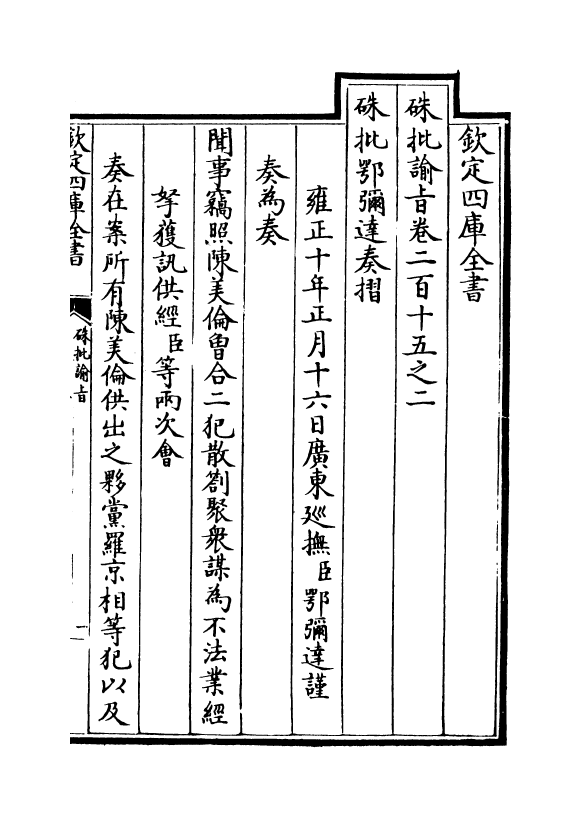 欽定四庫全書
硃批諭旨卷二百十五之二
硃批鄂彌達奏摺
雍正十年正月十六日廣東廵撫臣鄂彌達謹
奏為奏
聞事竊照陳美倫曾合二犯散劄聚衆謀為不法業經
拏獲訊供經臣等兩次會
奏在案所有陳美倫供出之夥黨羅京相等犯以及
欽定四庫全書
硃批諭旨